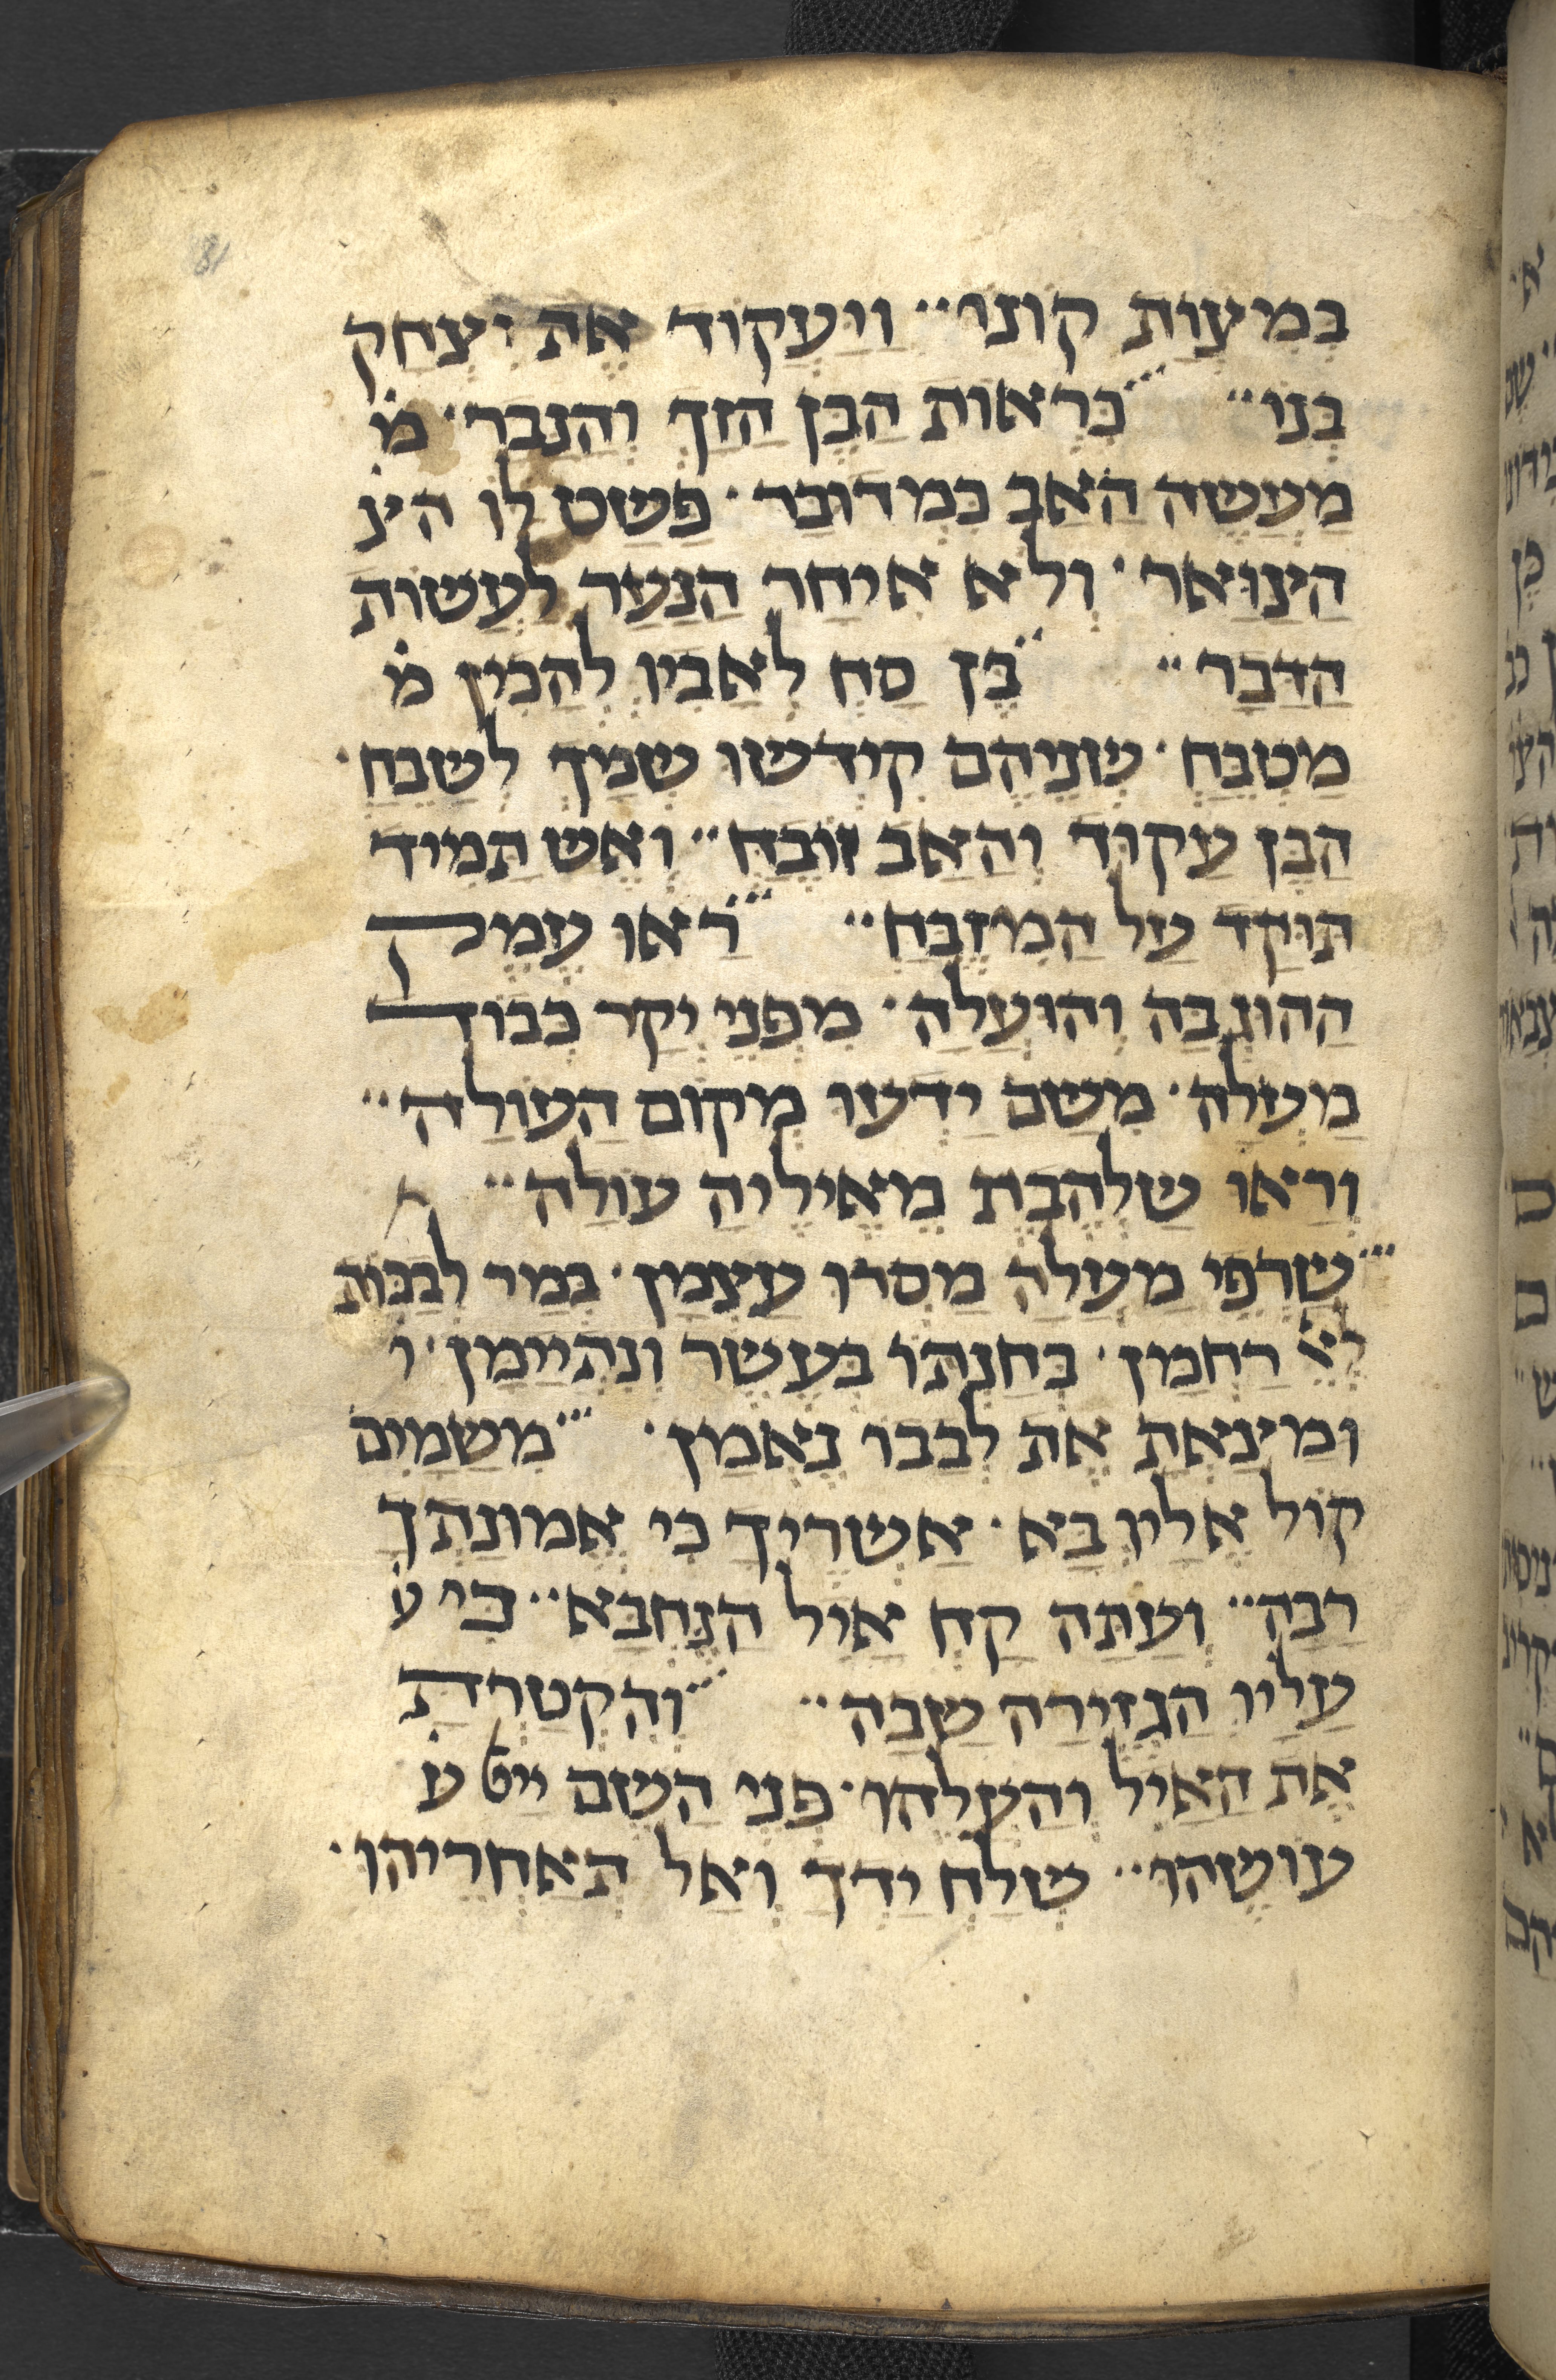 בִּמְצְוַת קוֹנוֹ·· וַיַּעֲקוֹד אֶת יִצְחַק
בְּנוֹ·· כִּרְאוֹת הַבֵּן הַזַּךְ וְהַנָּבָר· מׄ
מַעֲשֵׂה הָאָב כִּמְדוּבָּר· פָּשַׁט לוֹ הׄיׄנׄ
הַיְנוּאָר· וְלֹא אִיחַר הַנַּעַר לַעֲשׂוֹת
הַדָּבָר·· בֵּן סָח לְאָבִיו לְהָכִין מׄ
מַטְבֵּחַ· שְׁנֵיהֶם קִידְּשׁוּ שִׁמְךָ לְשַׁבֵּחַ·
הַבֵּן עָקוּד וְהָאָב זוֹבֵחַ·· וְאֵשׁ תָּמִיד
תּוּקַד עַל הַמִּזְבֵּחַ·· רָאוּ עֵמֶק
הַהוּגְבָּה וְהוּעֲלָה· מִפְּנֵי יְקָר כְּבוֹד
מַעְלָה· מִשָּׁם יָדְעוּ מְקוֹם הָעוֹלָה··
וְרָאוּ שַׁלְהֶבֶת מֵאֵילֶיהָ עוֹלָה··
שַׂרְפֵי מַעְלָה מָסְרוּ עַצְמָן· בְּמַר לִבְכּוֹת
לְאֵל רַחְמָן· בְּחַנְתּוֹ בְּעֶשֶׂר וְנִתְיַימָן· וׄ
וּמָצָאתָ אֶת לְבָבוֹ נֶאֱמָן· מִשָּׁמַיִם
קוֹל אֵלָיו בָּא· אַשְׁרֶיךָ כִּי אֱמוּנָתְךָ
רַבָּה·· וְעַתָּה קַח אַיִל הַנֶּחְבָּא·· כִּי עׄ
עָלָיו הַגְּזֵירָה שָׁבָה·· וְהִקְטַרְתָּ
אֶת הָאַיִל וְהַעֲלֵהוּ· פְּנֵי הַשֵּׁם יִיטׄ עׄ
עוֹשֵׂהוּ·· שְׁלַח יָדְךָ וְאַל תְּאַחֲרֵיהוּ·